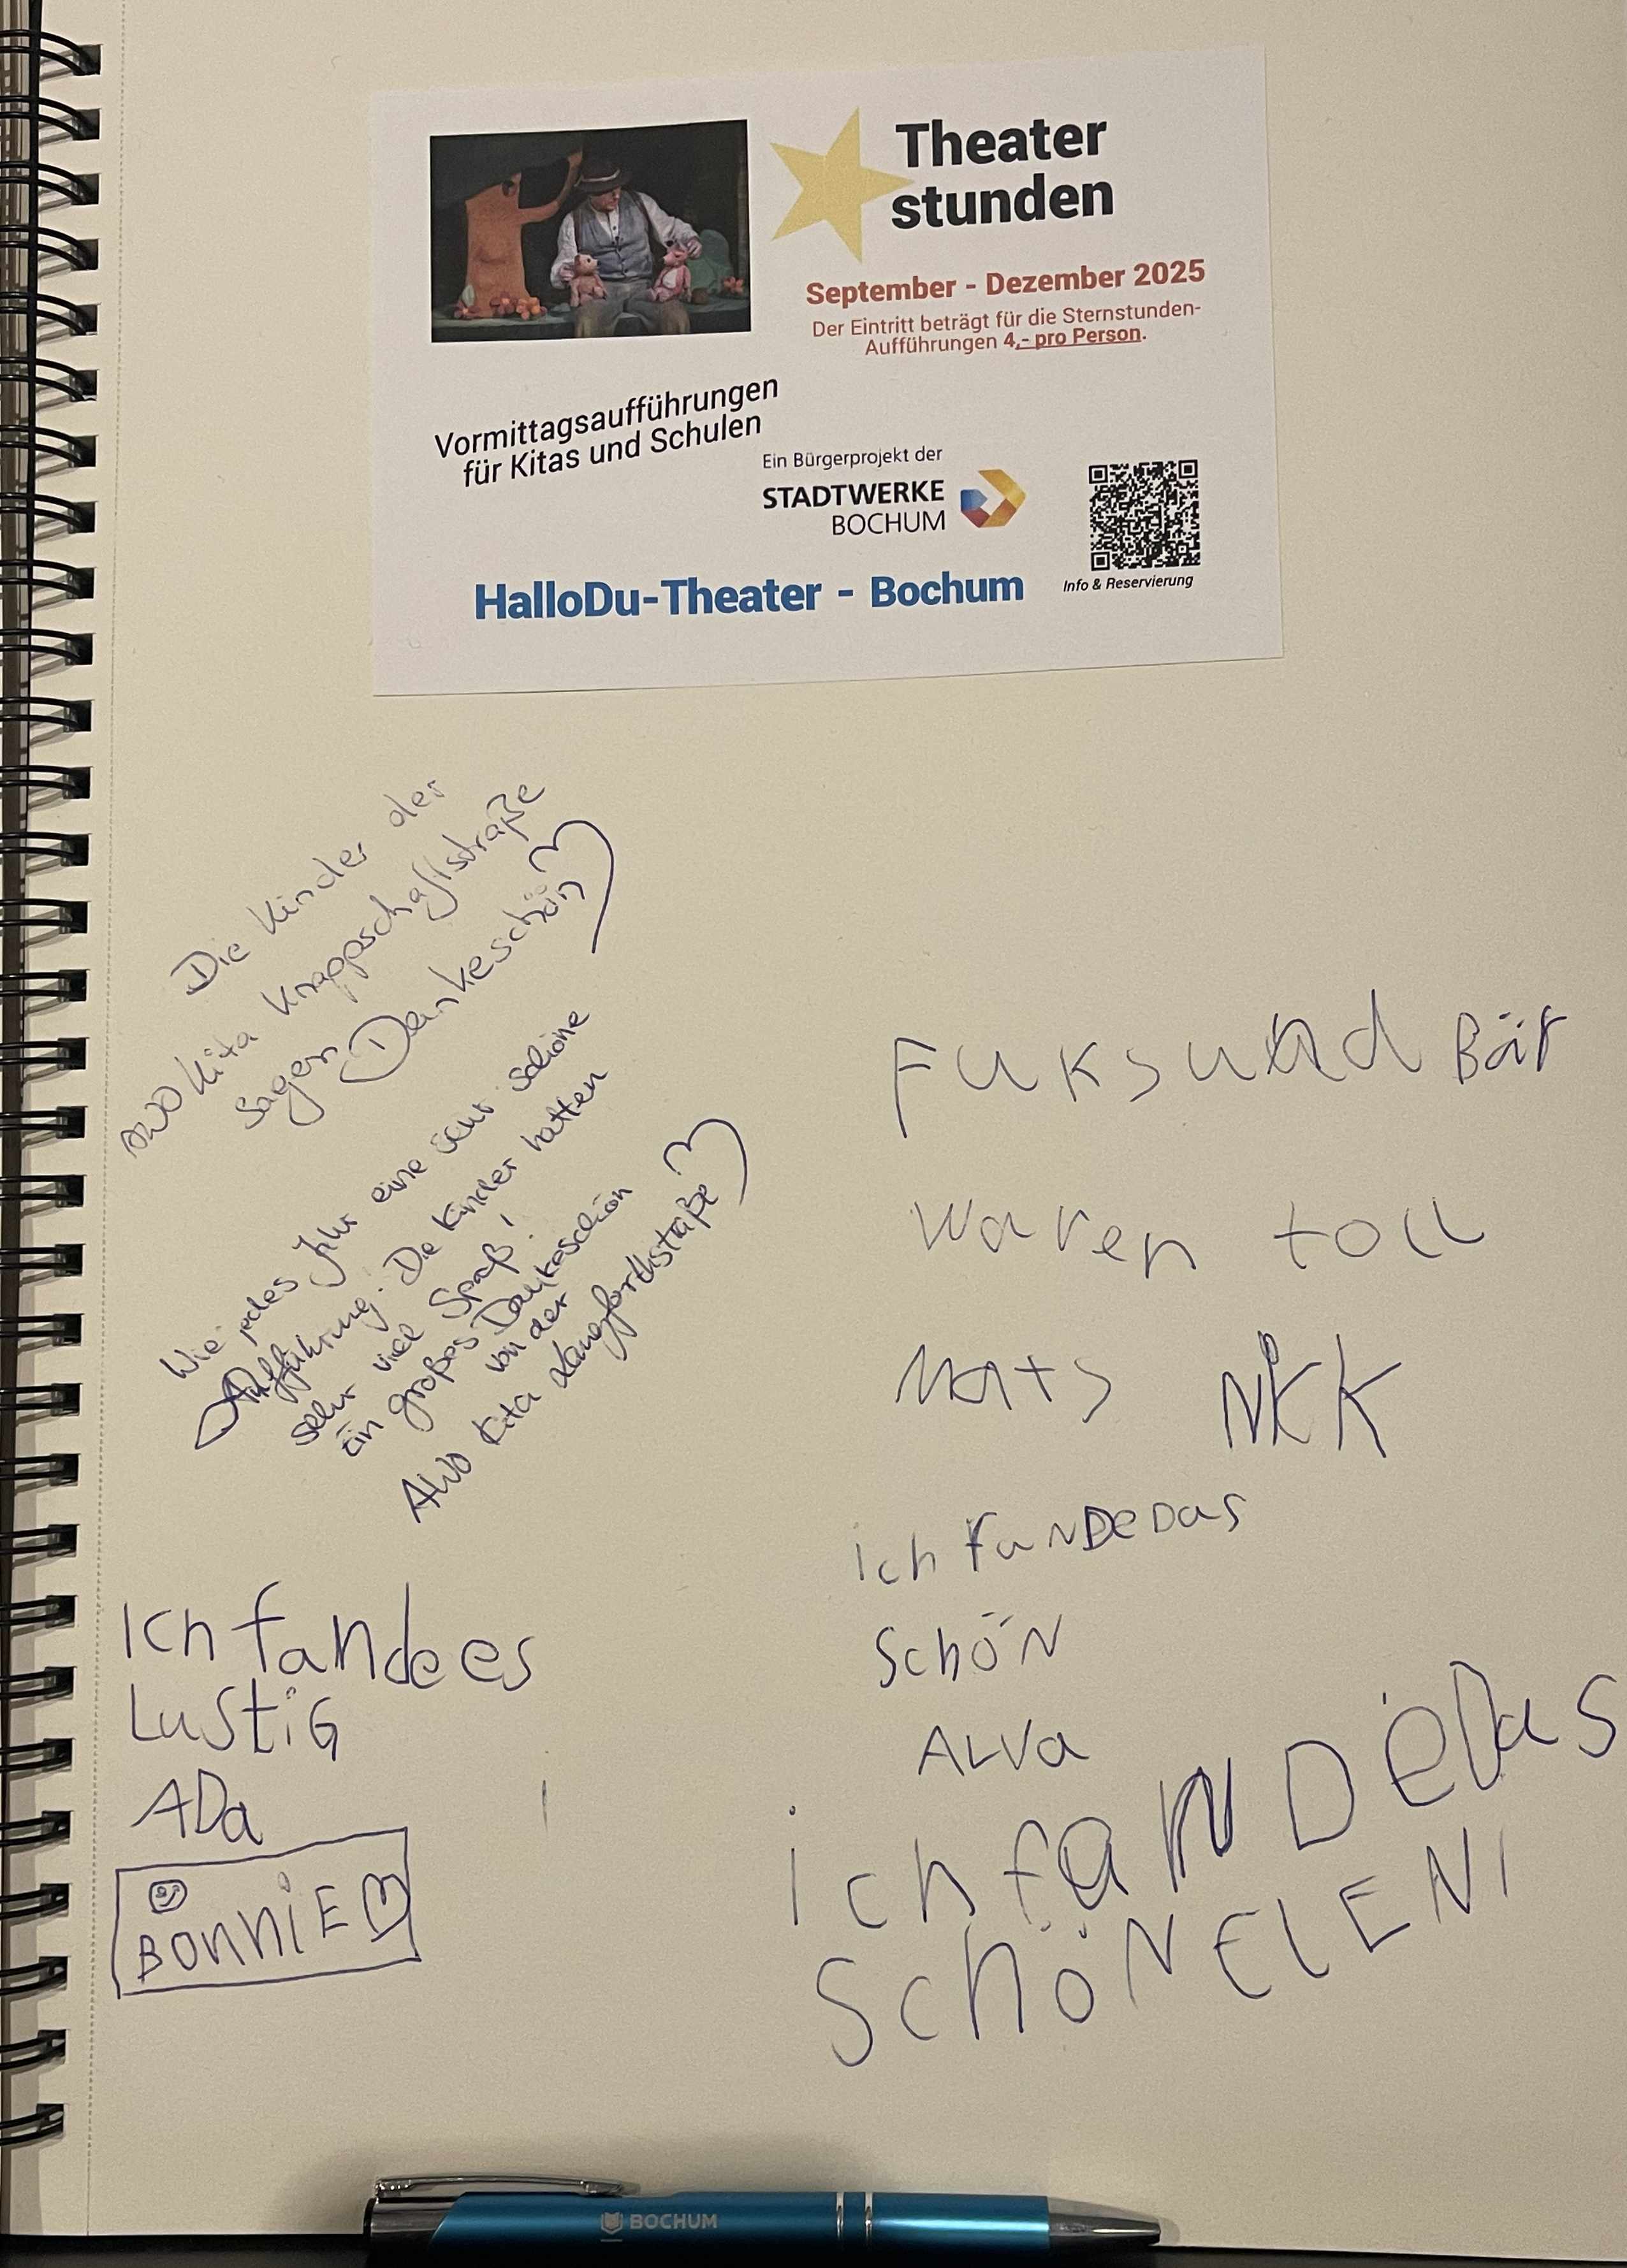 Theater
stunden
September - Dezember 2025
Der Eintritt beträgt für die Sternstunden-
Aufführungen 4,- pro Person.
Vormittagsaufführungen
für Kitas und Schulen
Ein Bürgerprojekt der
STADTWERKE
BOCHUM
HalloDu-Theater - Bochum
Info & Reservierung
Die Kinder der
AWO Kita Knappschaftstraße
sagen Dankeschön
Wie jedes Jahr eine sehr schöne
Aufführung. Die Kinder hatten
sehr viel Spaß!
Ein großes Dankeschön
von der
AWO Kita Langforthstraße
Fuksund Bär
waren toll
Mats
ich FaNDeDas
SchöN
ALVa
Ich fandees
LuStiG
ADa
BonniE
ichfaNDeDas
SchöNELENI
BOCHUM